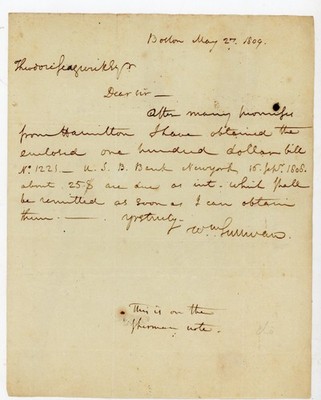 Boston May 2d. 1809.
Theodore Sedgwick Esqr
Dear sir —
After many promises
from Hamilton I have obtained the
enclosed one hundred dollar bill
No. 1221 — U.S.B. Bank Newyork 15. Sept. 1808.
about 25$ are due as int. which shall
be remitted as soon as I can obtain
them. — yrs truly
Wm Sullivan.
This is on the
note.